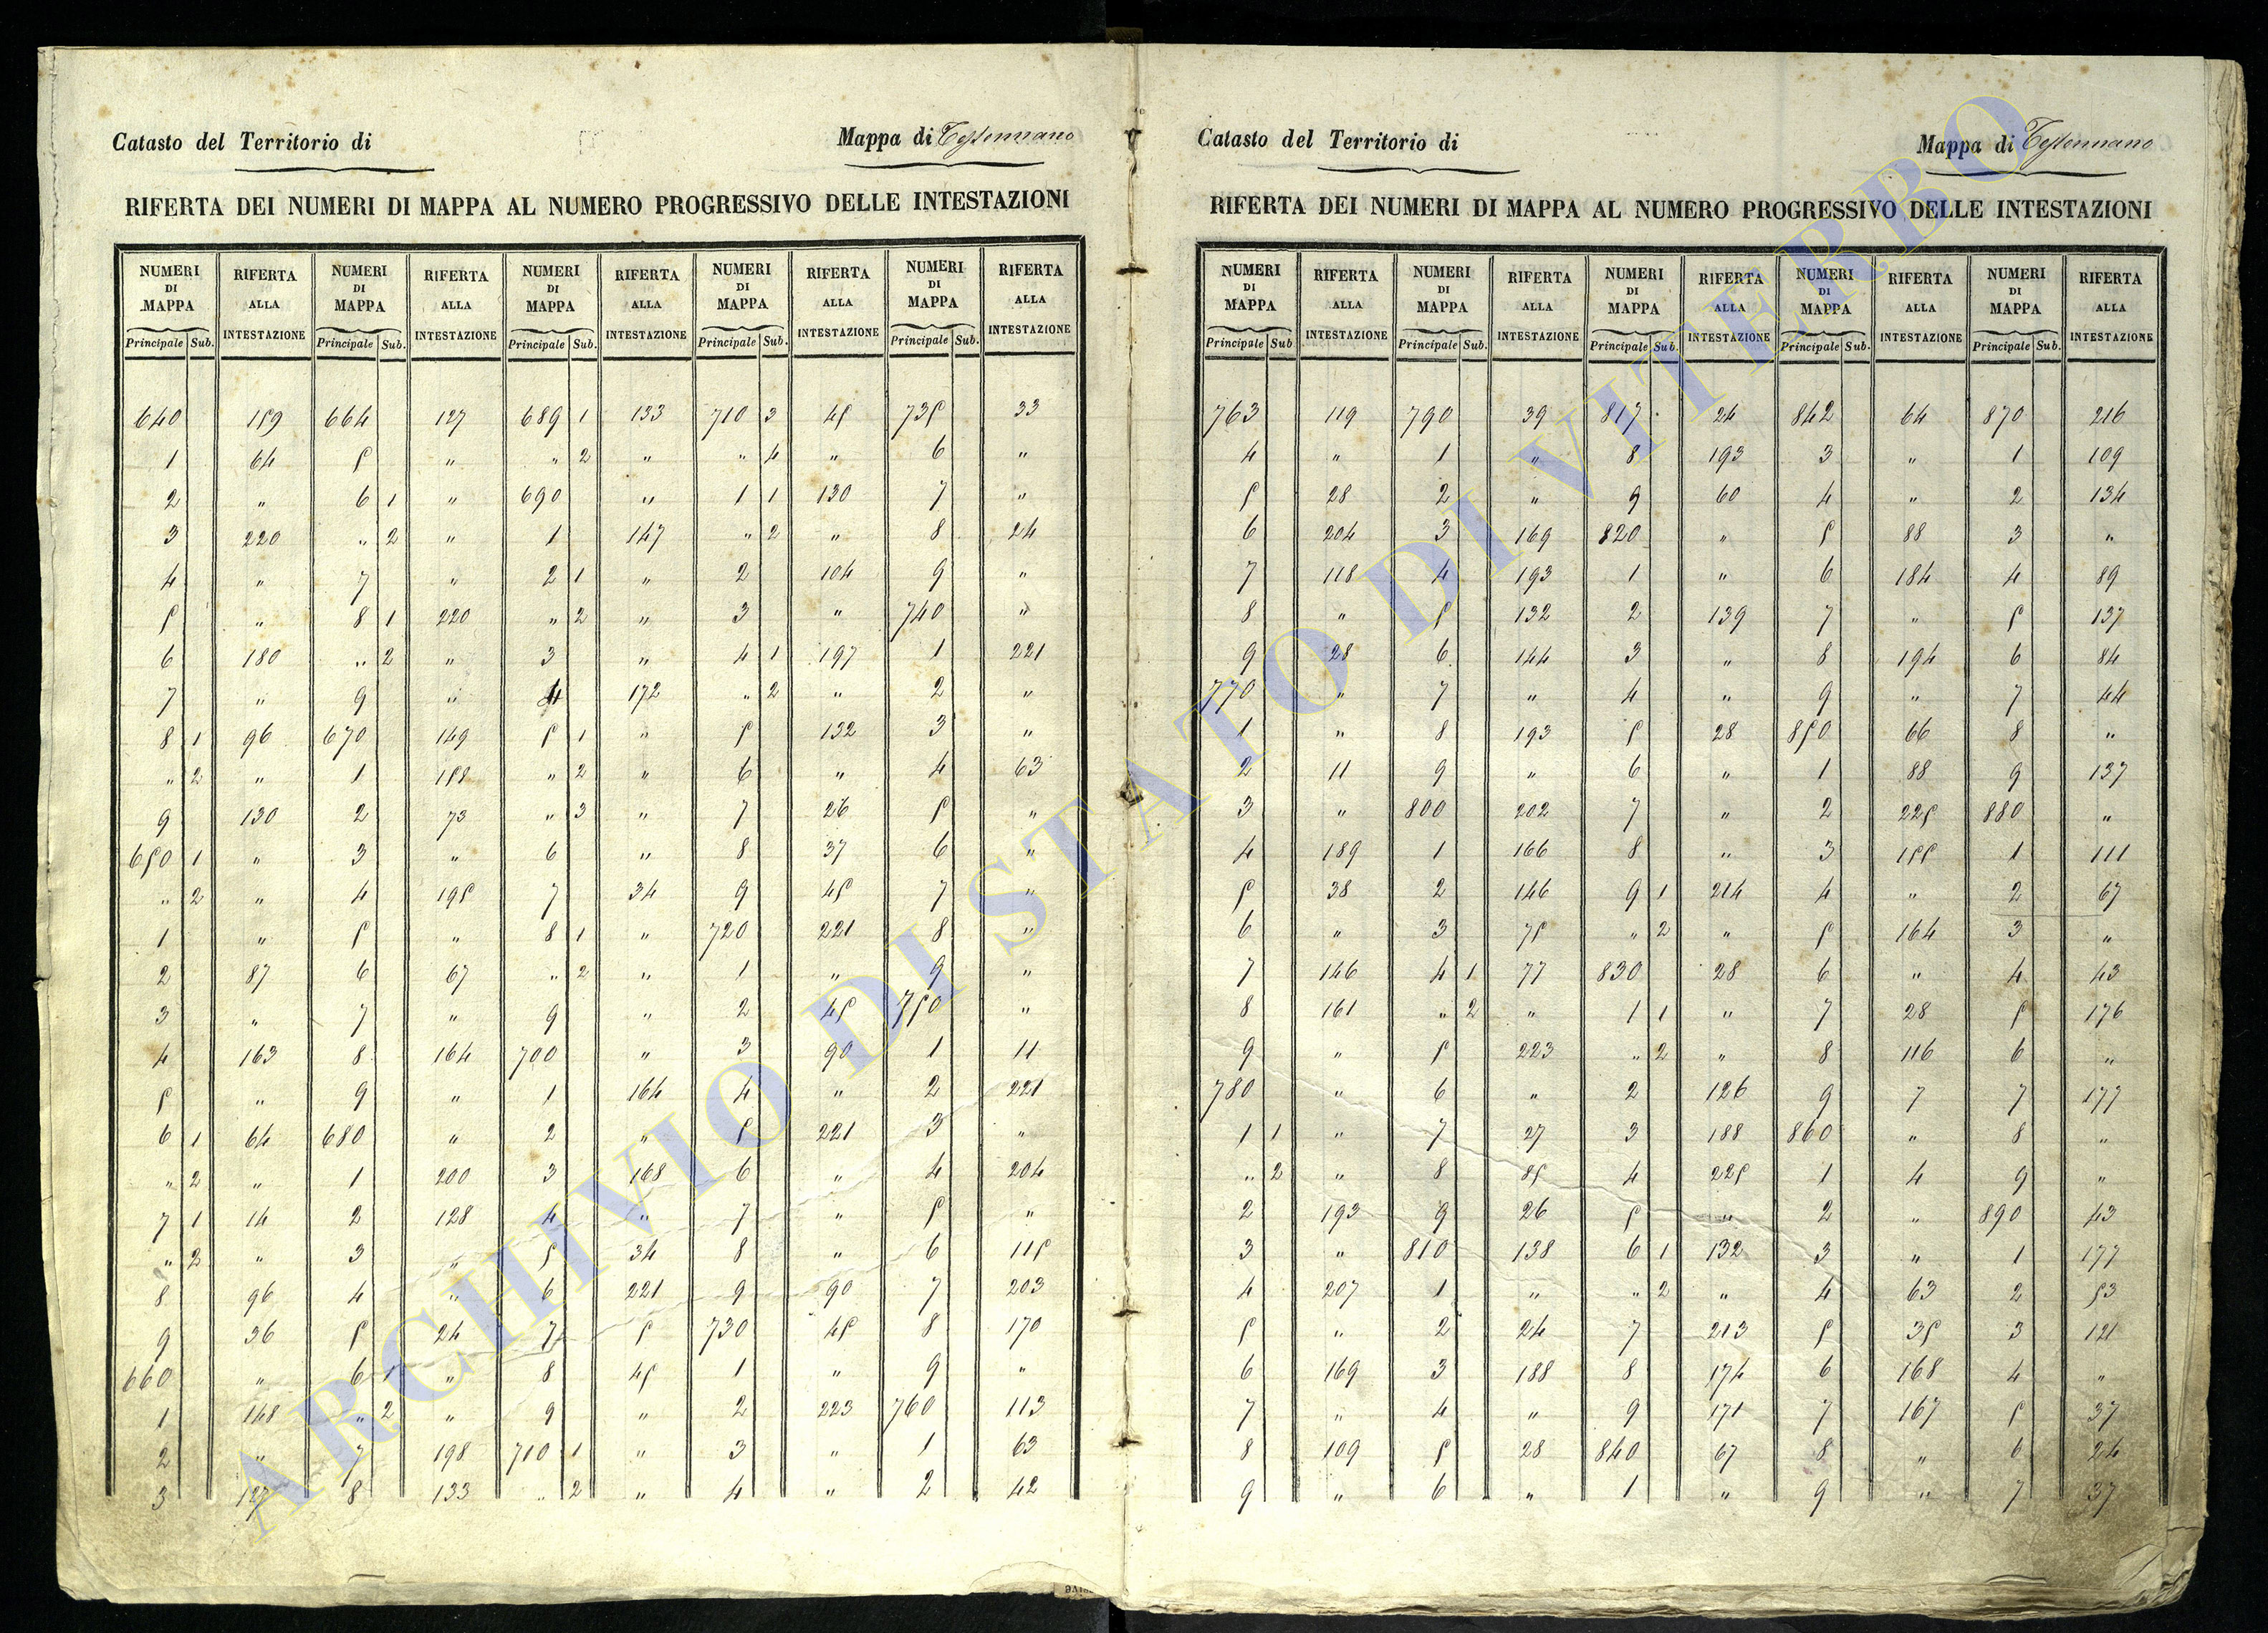 Catasto del Territorio di
Mappa di Tessennano
RIFERTA DEI NUMERI DI MAPPA AL NUMERO PROGRESSIVO DELLE INTESTAZIONI
NUMERI DI MAPPA RIFERTA ALLA INTESTAZIONE NUMERI DI MAPPA RIFERTA ALLA INTESTAZIONE NUMERI DI MAPPA RIFERTA ALLA INTESTAZIONE NUMERI DI MAPPA RIFERTA ALLA INTESTAZIONE NUMERI DI MAPPA RIFERTA ALLA INTESTAZIONE
Principale Sub. Principale Sub. Principale Sub. Principale Sub. Principale Sub.
640 159 664 127 689 1 133 710 3 45 735 33
1 64 5 " " 2 " " 4 " 6 "
2 " 6 1 " 690 " 1 1 130 7 "
3 220 " 2 " 1 147 " 2 " 8 24
4 " 7 " 2 1 " 2 104 9 "
5 " 8 1 220 " 2 " 3 " 740 "
6 180 " 2 " 3 " 4 1 197 1 221
7 " 9 " 4 172 " 2 " 2 "
8 1 96 670 149 5 1 " 5 132 3 "
" 2 " 1 158 " 2 " 6 " 4 63
9 130 2 73 " 3 " 7 26 5 "
650 1 " 3 " 6 " 8 37 6 "
" 2 " 4 195 7 34 9 45 7 "
1 " 5 " 8 1 " 720 221 8 "
2 87 6 67 " 2 " 1 " 9 "
3 " 7 " 9 " 2 45 750 "
4 163 8 164 700 " 3 90 1 11
5 " 9 " 1 164 4 " 2 221
6 1 64 680 " 2 " 5 221 3 "
" 2 " 1 200 3 168 6 " 4 204
7 1 14 2 128 4 " 7 " 5 "
" 2 " 3 " 5 34 8 " 6 115
8 96 4 " 6 221 9 90 7 203
9 36 5 24 7 5 730 45 8 170
660 " 6 1 " 8 45 1 " 9 "
1 148 " 2 " 9 " 2 223 760 113
2 " 7 198 710 1 " 3 " 1 63
3 127 8 133 " 2 " 4 " 2 42
Catasto del Territorio di
Mappa di Tessennano
RIFERTA DEI NUMERI DI MAPPA AL NUMERO PROGRESSIVO DELLE INTESTAZIONI
NUMERI DI MAPPA RIFERTA ALLA INTESTAZIONE NUMERI DI MAPPA RIFERTA ALLA INTESTAZIONE NUMERI DI MAPPA RIFERTA ALLA INTESTAZIONE NUMERI DI MAPPA RIFERTA ALLA INTESTAZIONE NUMERI DI MAPPA RIFERTA ALLA INTESTAZIONE
Principale Sub Principale Sub. Principale Sub. Principale Sub. Principale Sub.
763 119 790 39 817 24 842 64 870 216
4 " 1 " 8 193 3 " 1 109
5 28 2 " 9 60 4 " 2 134
6 204 3 169 820 " 5 88 3 "
7 118 4 193 1 " 6 184 4 89
8 " 5 132 2 139 7 " 5 137
9 28 6 144 3 " 8 194 6 84
770 " 7 " 4 " 9 " 7 44
1 " 8 193 5 28 850 66 8 "
2 11 9 " 6 " 1 88 9 137
3 " 800 202 7 " 2 225 880 "
4 189 1 166 8 " 3 155 1 111
5 38 2 146 9 1 214 4 " 2 67
6 " 3 75 " 2 " 5 164 3 "
7 146 4 1 77 830 28 6 " 4 43
8 161 " 2 " 1 1 " 7 28 5 176
9 " 5 223 " 2 " 8 116 6 "
780 " 6 " 2 126 9 7 7 177
1 1 " 7 27 3 188 860 " 8 "
" 2 " 8 85 4 225 1 4 9 "
2 193 9 26 5 " 2 " 890 43
3 " 810 138 6 1 132 3 " 1 177
4 207 1 " " 2 " 4 63 2 53
5 " 2 24 7 213 5 35 3 121
6 169 3 188 8 174 6 168 4 "
7 " 4 " 9 171 7 167 5 37
8 109 5 28 840 67 8 " 6 24
9 " 6 " 1 " 9 " 7 37
ARCHIVIO DI STATO DI VITERBO